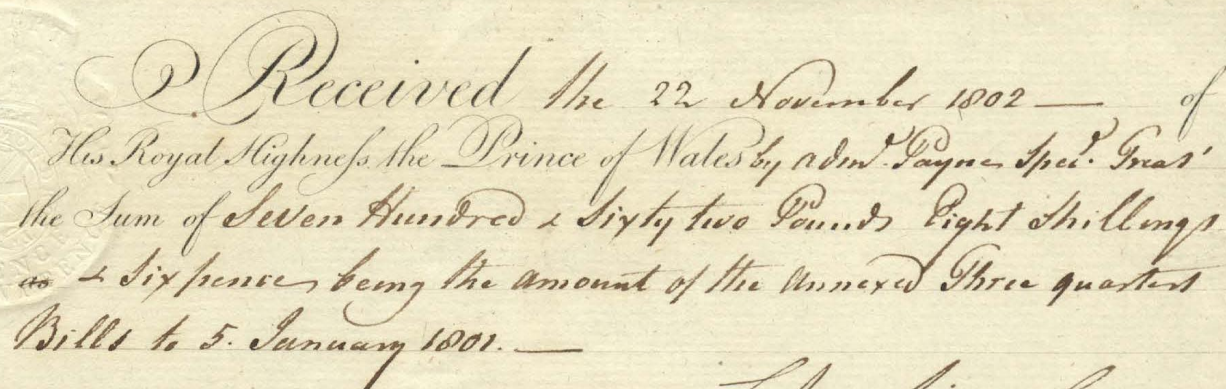 Received the 22 November 1802 — of
His Royal Highneſs the Prince of Wales by Adml. Payne Specl. Treasr
the Sum of Seven Hundred & Sixty two Pounds Eight Shillings
as & Six pence being the amount of the Annexed Three quarters
Bills to 5. January 1801. —